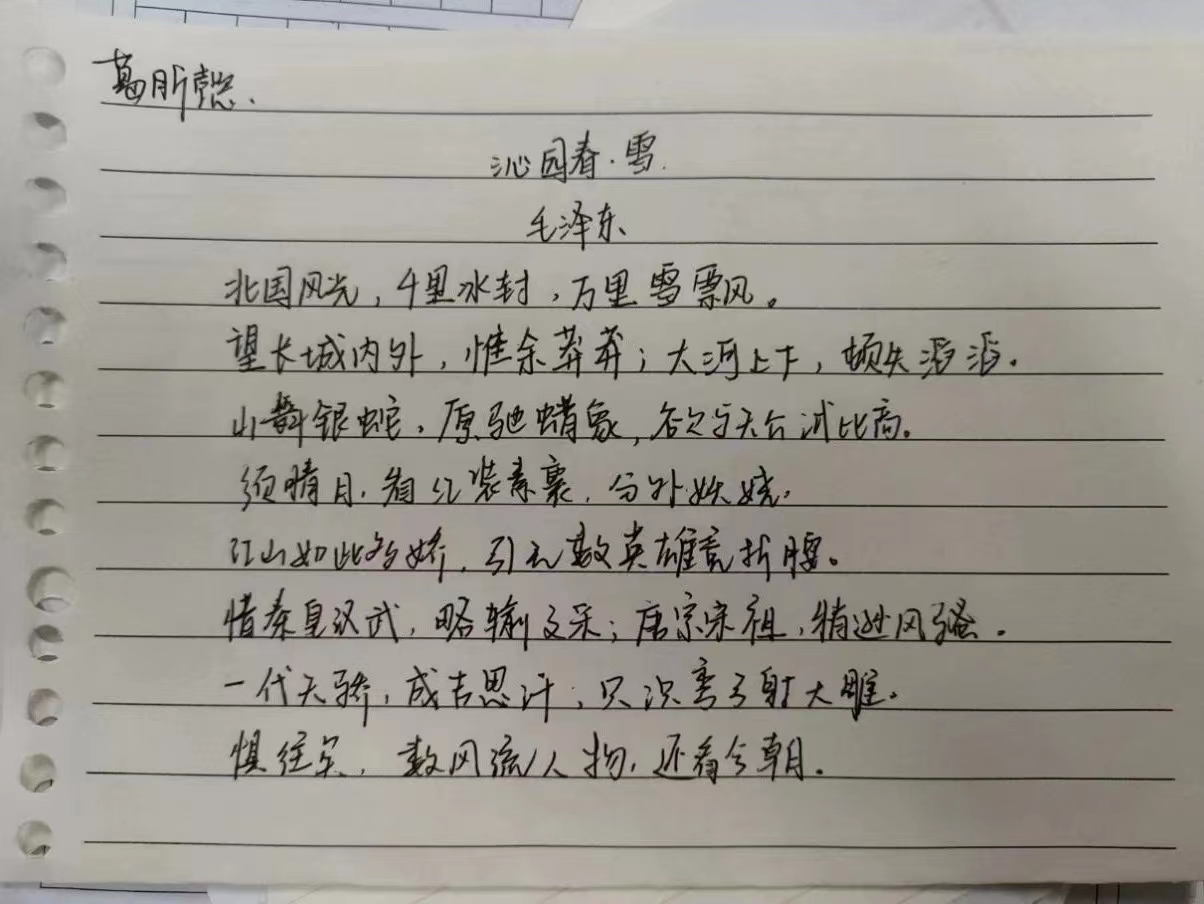 葛昕懿.
沁园春·雪
毛泽东
北国风光,千里冰封,万里雪飘。
望长城内外,惟余莽莽;大河上下,顿失滔滔。
山舞银蛇,原驰蜡象,欲与天公试比高。
须晴日,看红装素裹,分外妖娆。
江山如此多娇,引无数英雄竞折腰。
惜秦皇汉武,略输文采;唐宗宋祖,稍逊风骚。
一代天骄,成吉思汗,只识弯弓射大雕。
惧往矣,数风流人物,还看今朝。